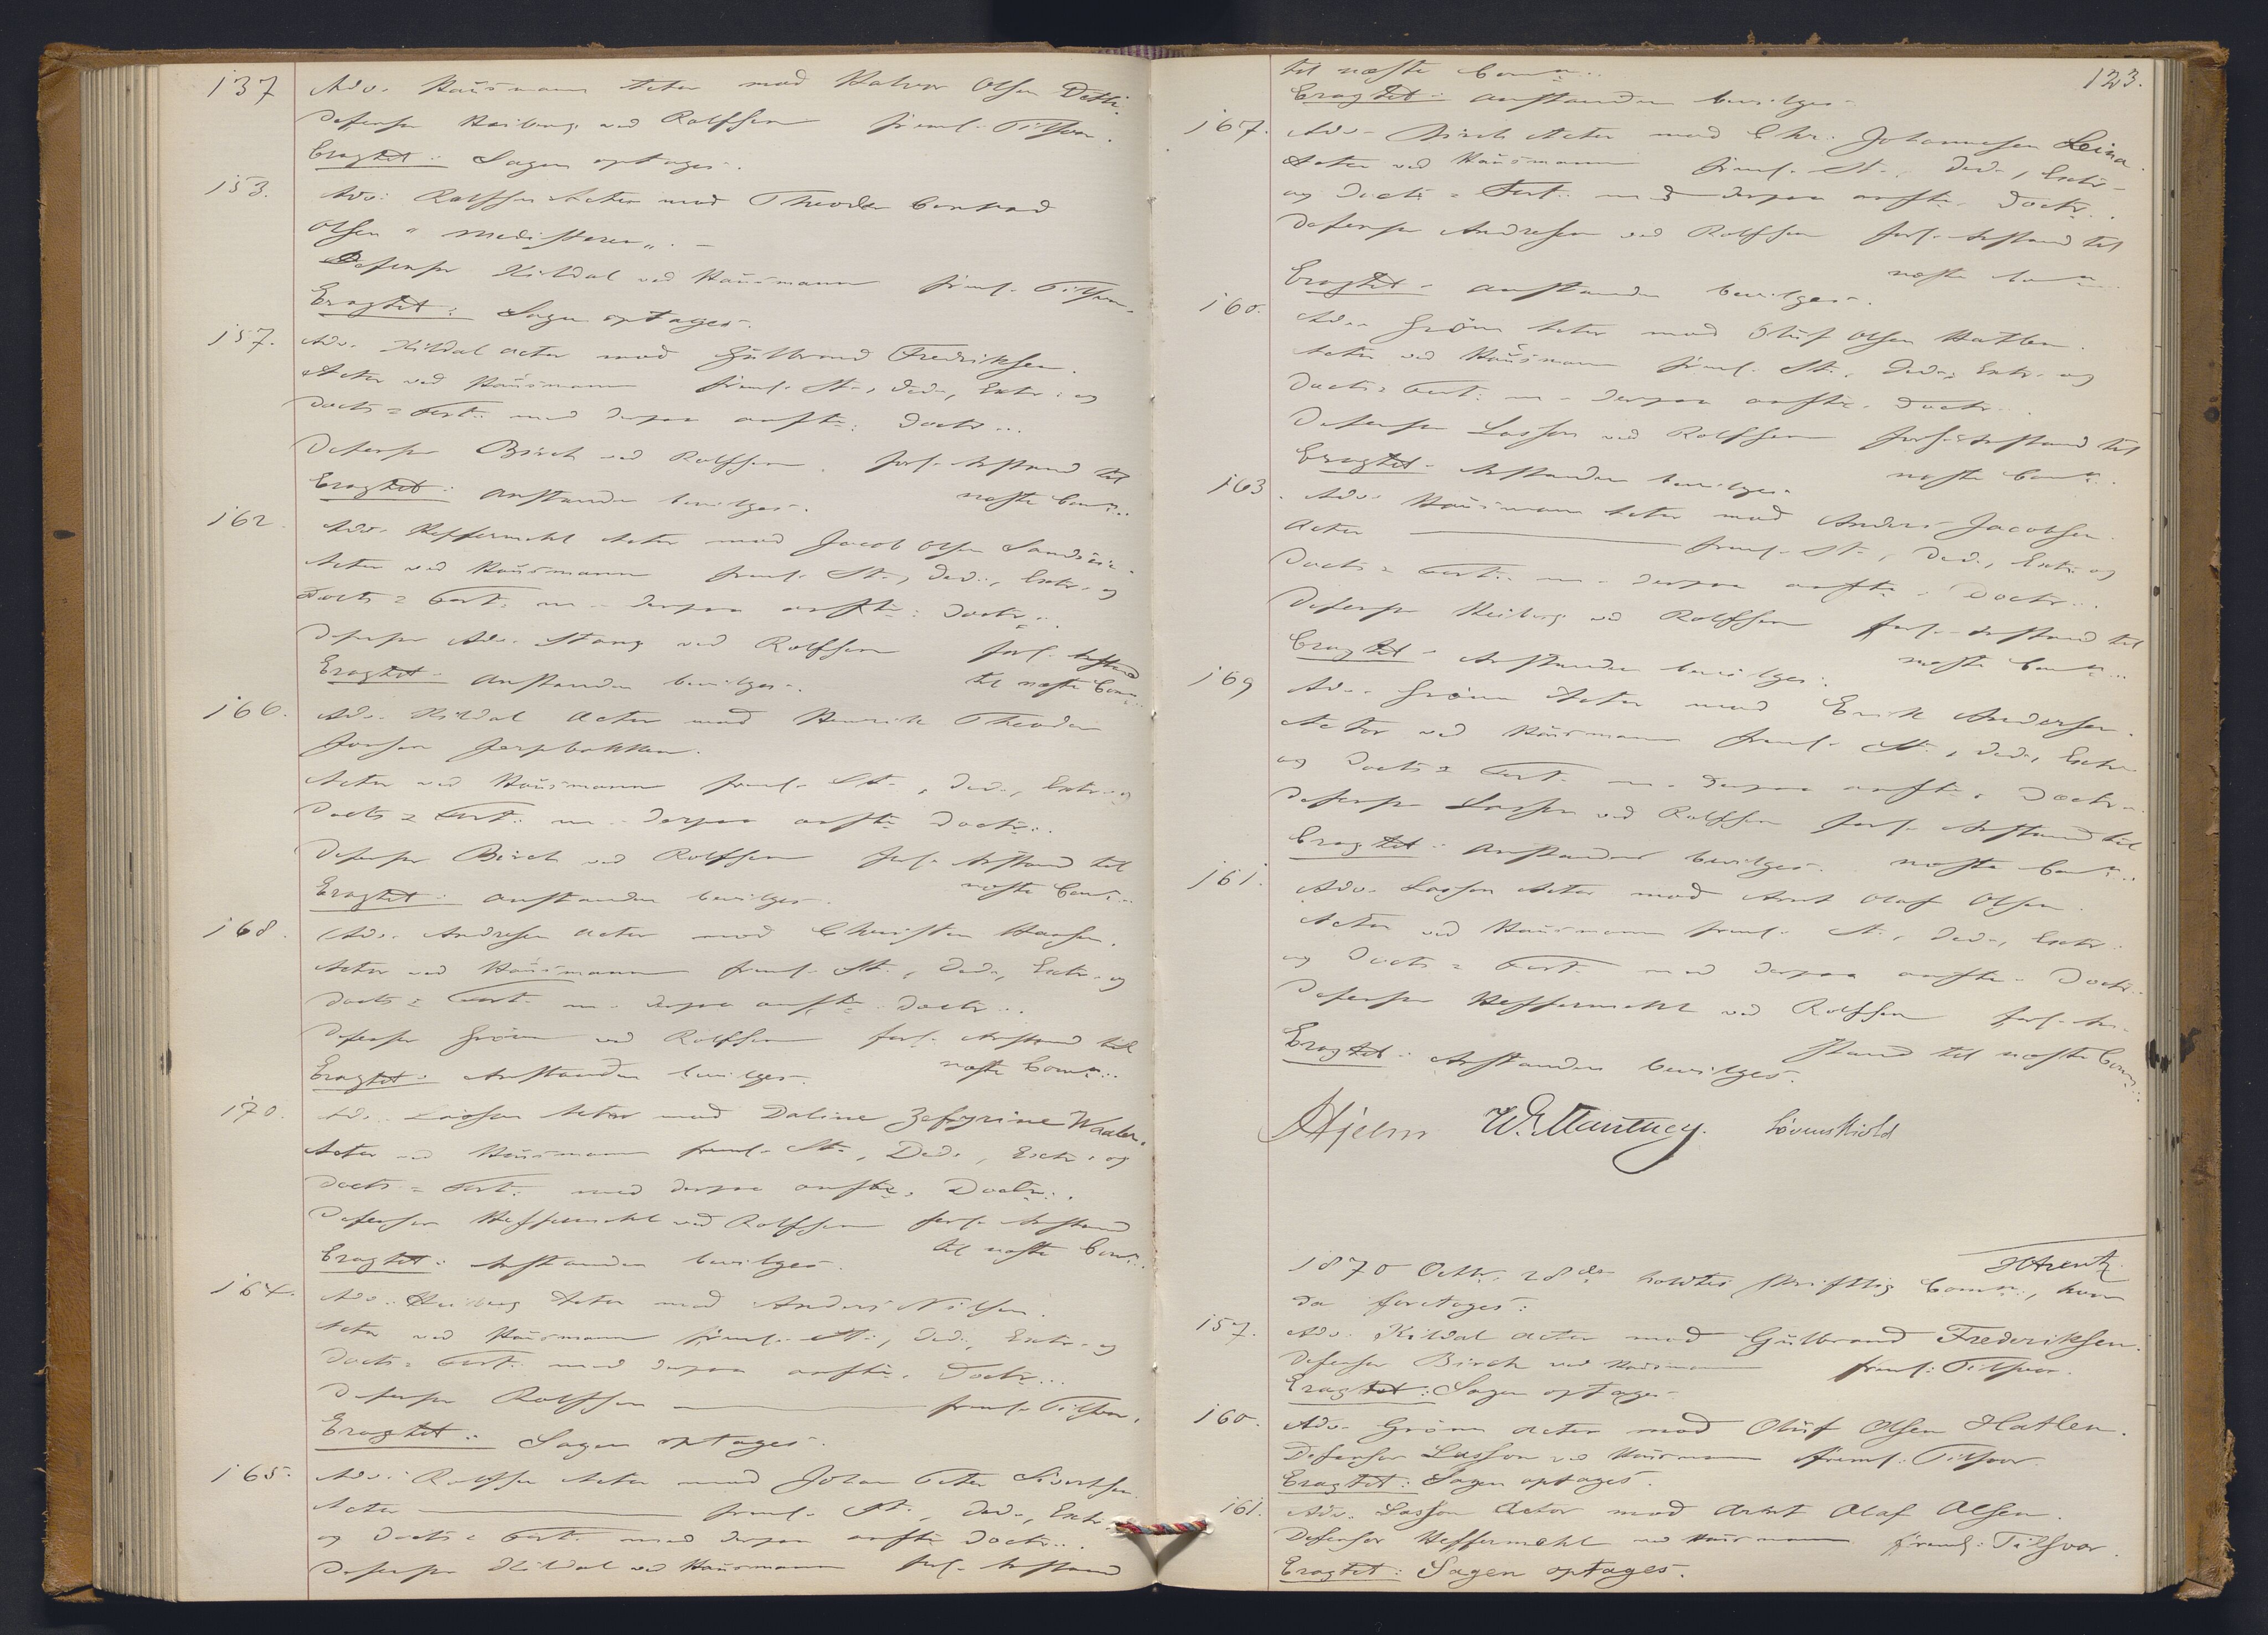 137 Adv. Hausmann Actor mod Halvor Olsen Detli.
Defensor Heiberg ved Rolfsen freml. Tilsvar.
Eragtet: Sagen optages.
153. Adv: Rolfsen Actor mod Theodor Conrad
Olsen "Medisteren".
Defensor Kildal ved Hausmann freml. Tilsvar.
Eragtet: Sagen optages.
157. Adv. Kildal Actor mod Gulbrand Fredriksen.
Actor ved Hausmann freml. St., Ded., Extr. og
Docts = Cert. med derpaa anftr. Doctr...
Defensor Birch ved Rolfsen forl. Anstand til
næste Com...
Eragtet: Anstanden bevilges.
162. Adv. Heffermehl Actor mod Jacob Olsen
Actor ved Hausmann freml. St., Ded., Extr. og
Docts = Cert. m. derpaa anftr. Doctr...
Defensor Adv. Stang ved Rolfsen forl. Anstand
til næste Com...
Eragtet: Anstanden bevilges.
166. Adv. Kildal Actor mod Henrik Theodor
Jonsen Jerpbakken.
Actor ved Hausmann freml. St., Ded., Extr. og
Docts = Cert. m. derpaa anftr. Doctr...
Defensor Birch ved Rolfsen forl. Anstand til
næste Com...
Eragtet: Anstanden bevilges.
168. Adv. Andresen Actor mod Christen Hansen.
Actor ved Hausmann freml. St., Ded., Extr. og
Docts = Cert. m. derpaa anftr. Doctr...
Defensor Grönn ved Rolfsen forl. Anstand til
næste Com...
Eragtet: Anstanden bevilges.
170. Adv. Lasson Actor mod Daline Zefyrine Waaler.
Actor ved Hausmann freml. St., Ded., Extr. og
Docts = Cert. med derpaa anftr. Doctr..
Defensor Heffermehl ved Rolfsen forl. Anstand
til næste Com...
Eragtet: Anstanden bevilges.
164. Adv. Heiberg Actor mod Anders Nilsen.
Actor ved Hausmann freml. St., Ded., Extr. og
Docts = Cert. med derpaa anftr. Doctr...
Defensor Rolfsen freml. Tilsvar.
Eragtet: Sagen optages.
165. Adv. Rolfsen Actor mod Johan Peter Sivertsen
Actor freml. St., Ded., Extr.
og Docts = Cert. med derpaa anftr. Doctr...
Defensor Kildal ved Hausmann forl. Anstand
123.
til næste Com...
Eragtet: Anstanden bevilges.
167. Adv. Birch Actor mod Chr. Johannesen Leina.
Actor ved Hausmann freml. St., Ded., Extr.
og Docts = Cert. med derpaa anftr. Doctr..
Defensor Andresen ved Rolfsen forl. Anstand til
næste Com...
Eragtet: Anstanden bevilges.
160. Adv. Grönn Actor mod Oluf Olsen Hatlen.
Actor ved Hausmann freml. St., Ded., Extr. og
Docts = Cert. m. derpaa anftr. Doctr...
Defensor Lasson ved Rolfsen forl. Anstand til
næste Com...
Eragtet: Anstanden bevilges.
163. Adv. Hausmann Actor mod Anders Jacobsen.
Actor freml. St., Ded., Extr. og
Docts = Cert. m. derpaa anftr. Doctr...
Defensor Heiberg ved Rolfsen forl. Anstand til
næste Com...
Eragtet: Anstanden bevilges.
169 Adv. Grönn Actor mod Erik Andersen.
Actor ved Hausmann freml. St., Ded., Extr.
og Docts = Cert. m. derpaa anftr. Doctr..
Defensor Lasson ved Rolfsen forl. Anstand til
næste Com...
Eragtet: Anstanden bevilges.
161. Adv. Lasson Actor mod Arnt Olaf Olsen.
Actor ved Hausmann freml. St., Ded., Extr.
og Docts = Cert. med derpaa anftr. Doctr..
Defensor Heffermehl ved Rolfsen forl. An-
stand til næste Com...
Eragtet: Anstanden bevilges.
Hjelm W. Manthey. Løvenskiold
1870 Octbr. 28de holdtes skriftlig Comn., hvor
da foretoges:
157. Adv. Kildal Actor mod Gulbrand Frederiksen.
Defensor Birch ved Hausmann freml. Tilsvar.
Eragtet: Sagen optages.
160. Adv. Grönn Actor mod Oluf Olsen Hatlen.
Defensor Lasson ved Hausmann freml. Tilsvar.
Eragtet: Sagen optages.
161. Adv. Lasson Actor mod Arnt Olaf Olsen.
Defensor Heffermehl ved Hausmann freml: Tilsvar.
Eragtet: Sagen optages.